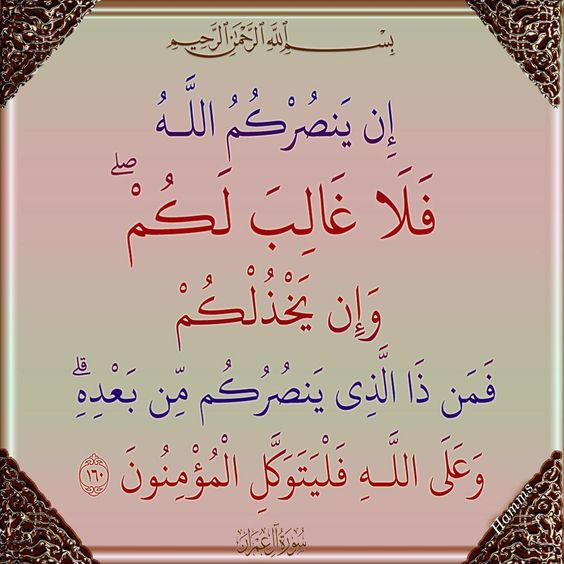 بِسْمِ ٱللَّهِ ٱلرَّحْمَٰنِ ٱلرَّحِيمِ
إِن يَنصُرْكُمُ اللَّهُ
فَلَا غَالِبَ لَكُمْ ۖ
وَإِن يَخْذُلْكُمْ
فَمَن ذَا الَّذِى يَنصُرُكُم مِّن بَعْدِهِ ۗ
وَعَلَى اللَّهِ فَلْيَتَوَكَّلِ الْمُؤْمِنُونَ ١٦٠
Hamms
سُورَةُ آلِ عِمْرَانَ